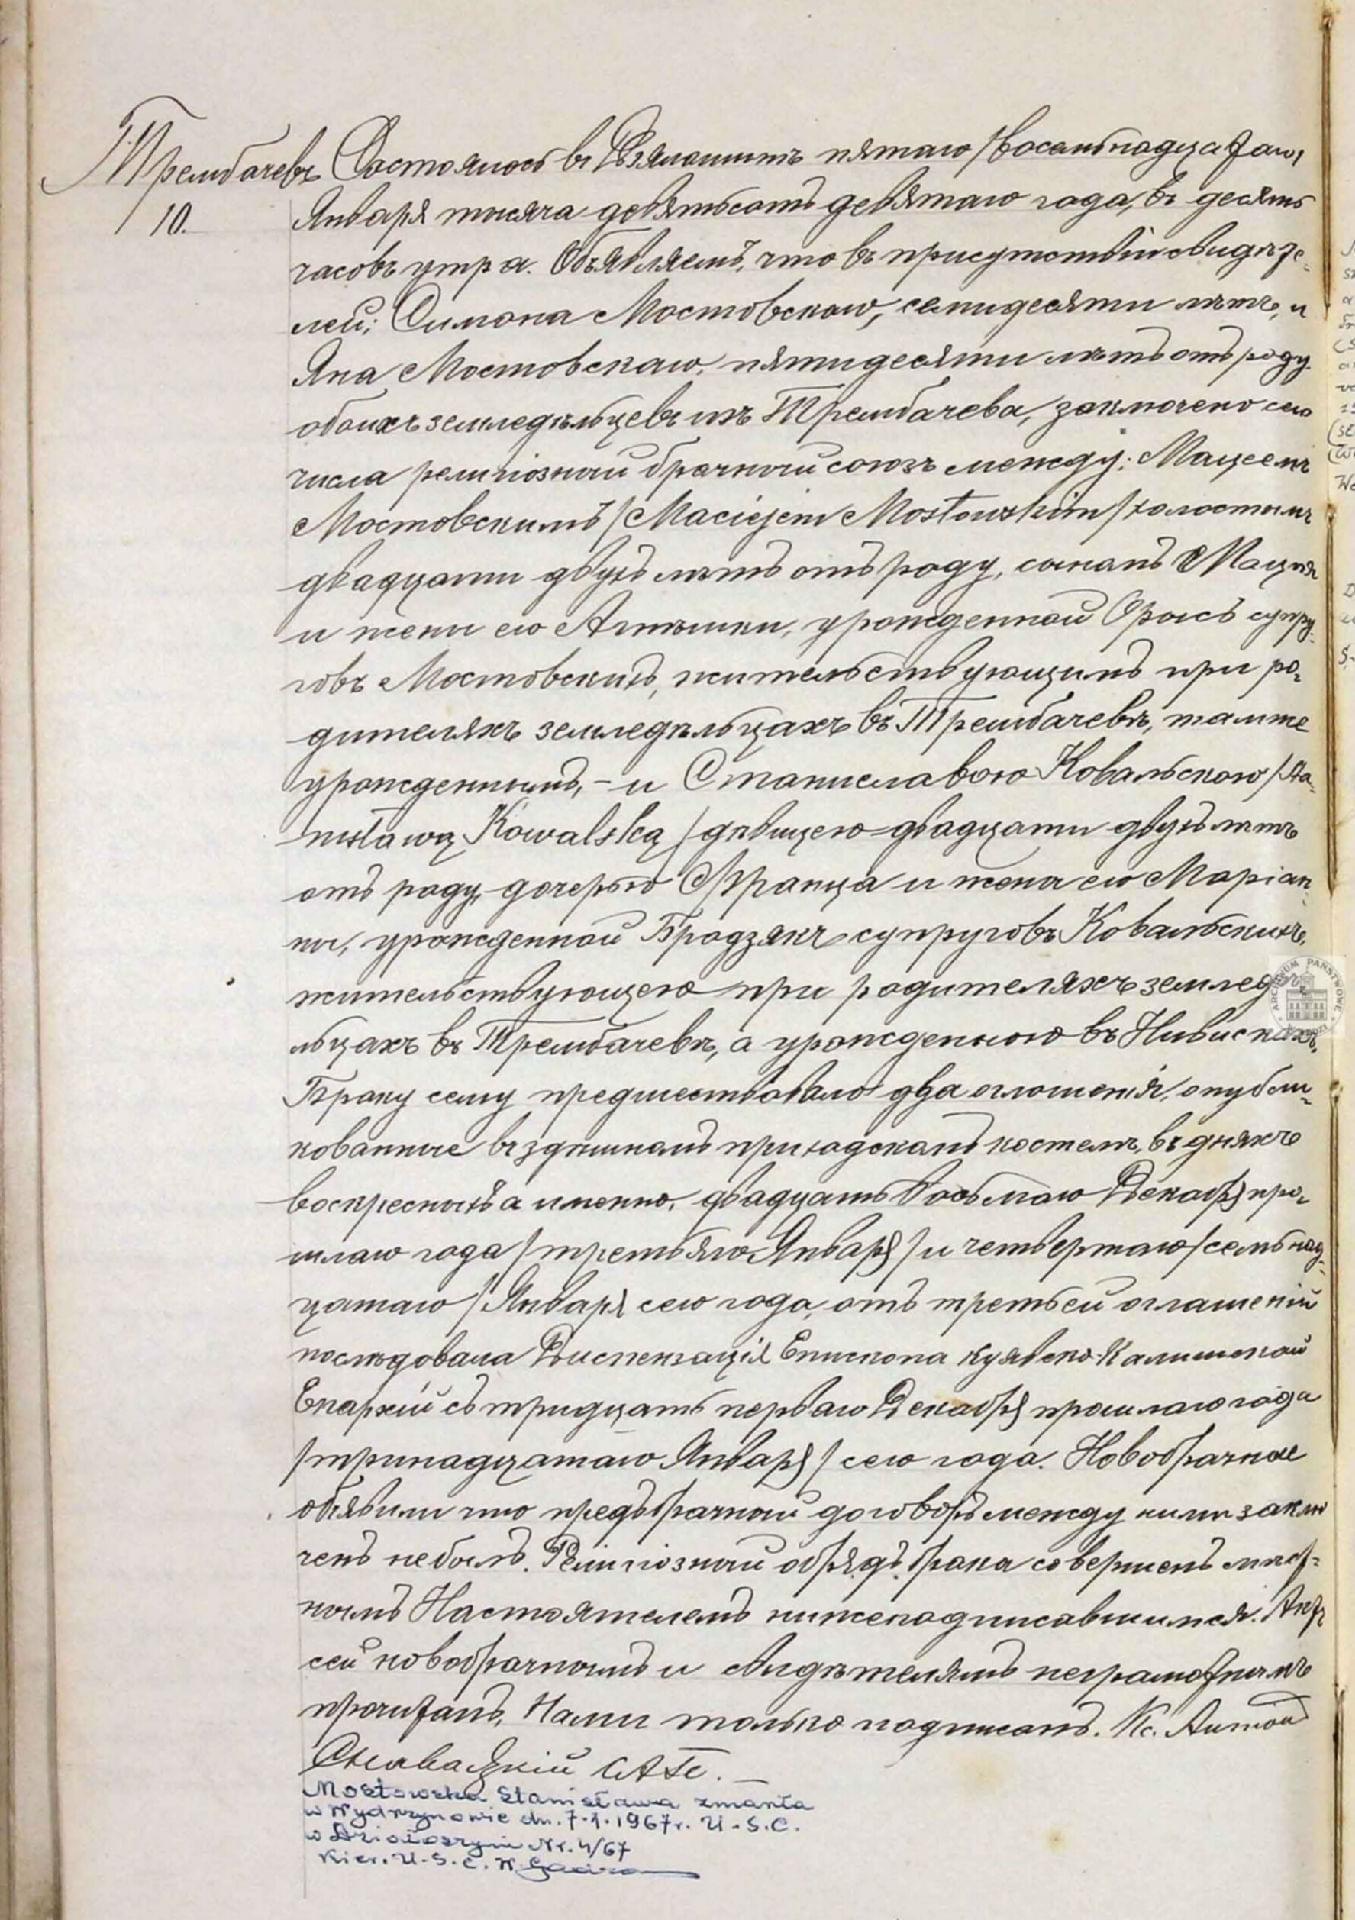 Трембачевъ Состоялось въ Дзялошинѣ пятаго /восемьнадцатаго/
10. Января тысяча девятьсотъ девятаго года, въ десять
часовъ утра. Объявляемъ, что въ присутствіи свидѣте-
лей: Симона Мостовскаго, семидесяти лѣтъ, и
Яна Мостовскаго, пятидесяти лѣтъ отъ роду
обоихъ земледѣльцевъ изъ Трембачева, заключено сего
числа религіозный брачный союзъ между: Мацеемъ
Мостовскимъ /Maciejem Mostowskim/ холостымъ
двадцати двухъ лѣтъ отъ роду, сыномъ Мацея
и жены его Агнѣшки, урожденной супру-
говъ Мостовскихъ, жительствующимъ при ро-
дителяхъ земледѣльцахъ въ Трембачевѣ, тамже
урожденнымъ, - и Станиславою Ковальскою /Sta-
nisławą Kowalską/ дѣвицею двадцати двухъ лѣтъ
отъ роду, дочерью Франца и жены его Маріан-
ны, урожденной Бродзякъ супруговъ Ковальскихъ,
жительствующею при родителяхъ землед
льцахъ въ Трембачевѣ, а урожденною въ Нивискахъ.
Браку сему предшествовало два оглошенія, опубли-
кованные въ здѣшномъ приходскомъ костелѣ, въ дняхъ
воскресныхъ а именно, двадцать восьмаго Декабря про-
шлаго года /третьяго Января/ и четвертаго /семьнад-
цатаго/ Января сего года, отъ третьей оглашеній
послѣдовала Диспензація Епископа Куявско-Калишской
Епархіи съ тридцать перваго Декабря прошлаго года
/тринадцатаго Января/ сего года. Новобрачные
объявили что предъбрачный договоръ между ними заклю
ченъ небылъ. Религіозный обрядъ брака совершенъ мѣст-
нымъ Настоятелемъ нижеподписавшимся. Актъ
сей новобрачнымъ и свидѣтелямъ неграмотнымъ
прочитанъ, Нами только подписанъ. Кс. Антон
Mostowska Stanisława zmarła
w Wydrzynowie dn. 7.1.1967r. U.S.C.
w Działoszynie Nr. 4/67
Kier. U.S.C.
ARCHIWUM PAŃSTWOWE